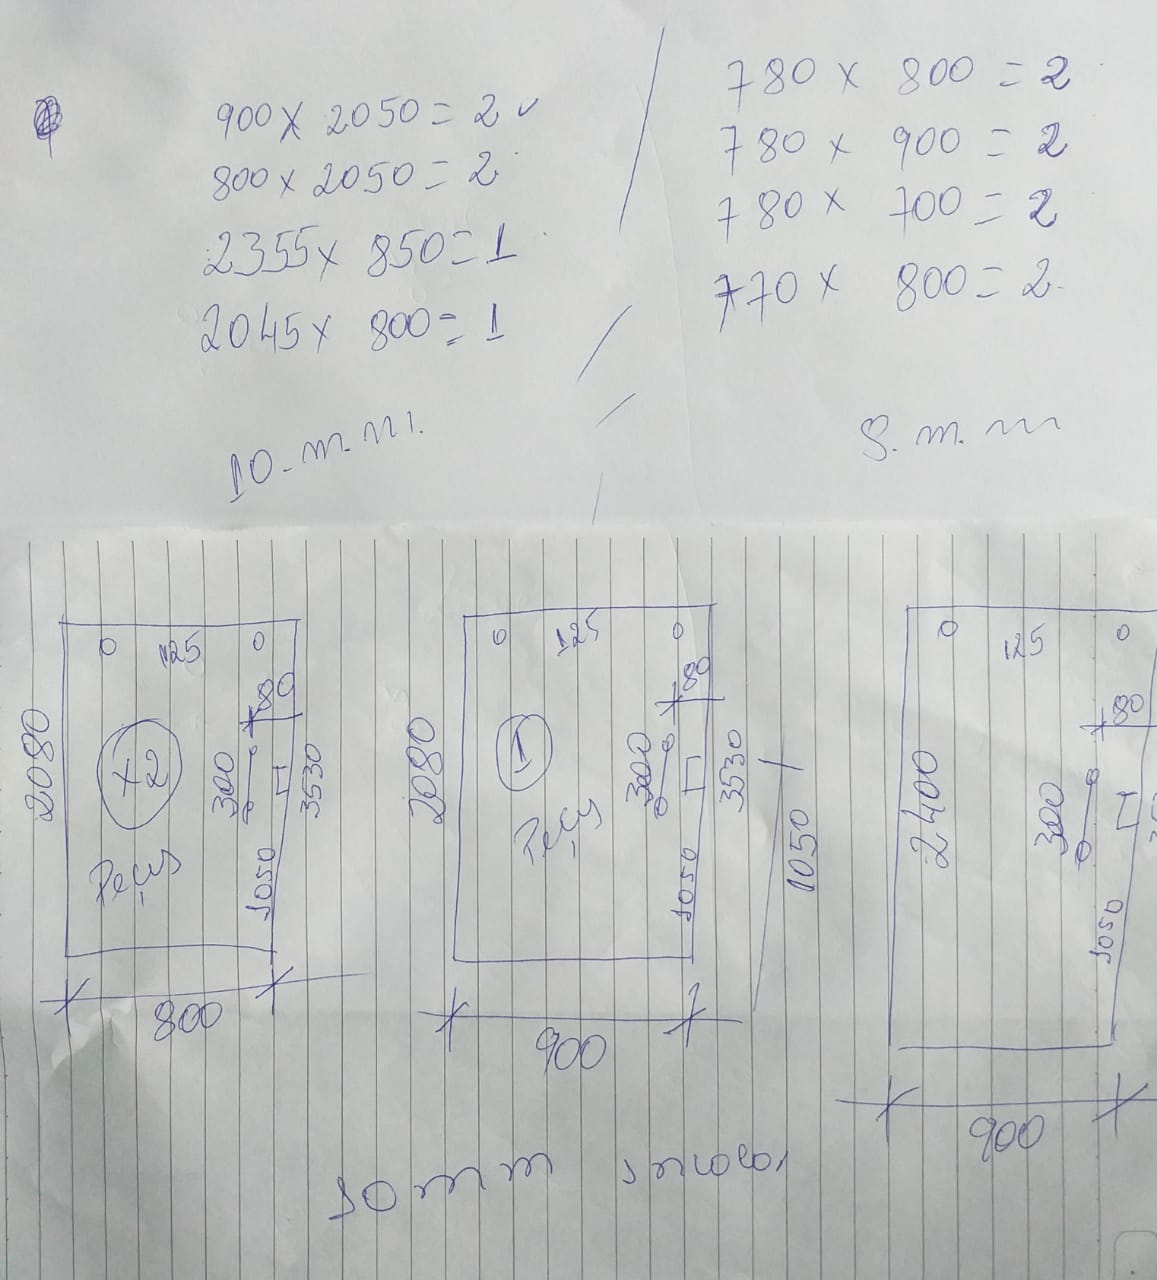 900 x 2050 = 2 ✓
800 x 2050 = 2
2355 x 850 = 1
2045 x 800 = 1
10.m.m.
780 x 800 = 2
780 x 900 = 2
780 x 700 = 2
770 x 800 = 2
8.m.m
125
80
2080
x2
300
3530
1050
800
125
80
2080
1
300
3530
1050
900
1050
125
80
2400
300
1050
900
10 m m